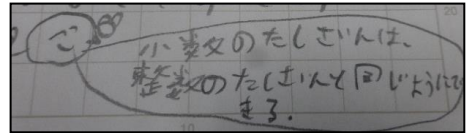 ご
小数のたしざんは、
整数のたしざんと同じようにで
きる.